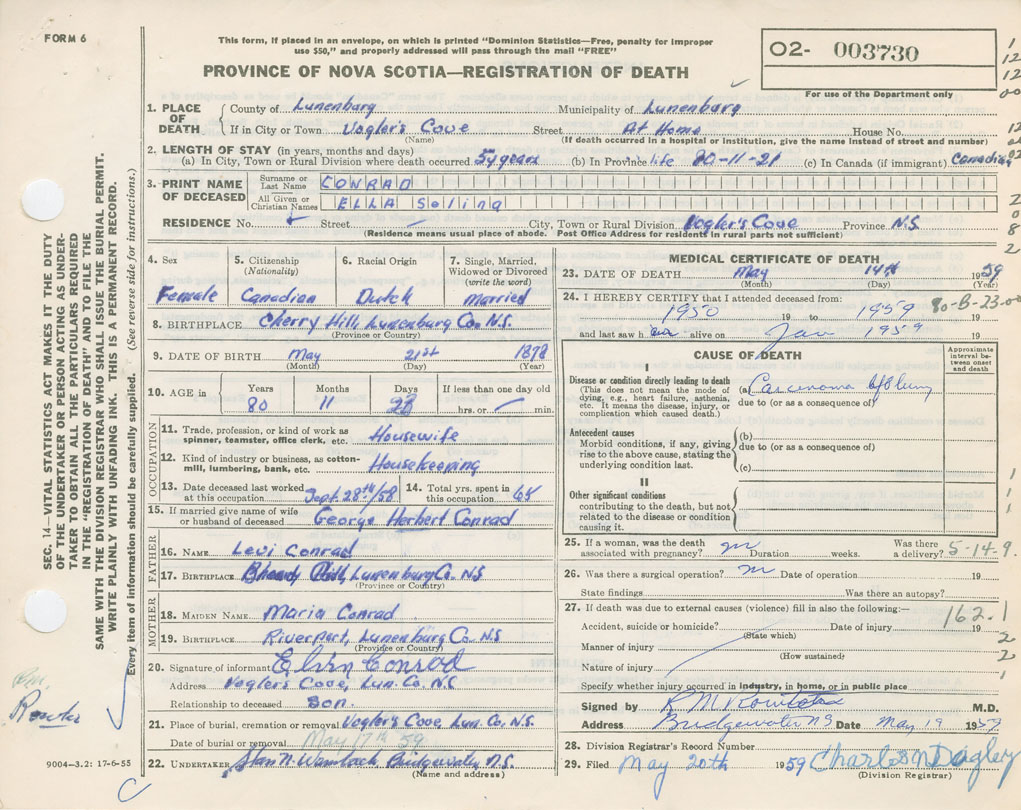 FORM 6
This form, if placed in an envelope, on which is printed "Dominion Statistics—Free, penalty for improper
use $50," and properly addressed will pass through the mail "FREE"
PROVINCE OF NOVA SCOTIA—REGISTRATION OF DEATH
O2- 003730
For use of the Department only
1. PLACE OF DEATH County of Lunenburg Municipality of Lunenburg
If in City or Town Vogler's Cove Street At Home House No.
(Name) (If death occurred in a hospital or institution, give the name instead of street and number)
2. LENGTH OF STAY (in years, months and days)
(a) In City, Town or Rural Division where death occurred 54 years (b) In Province life 80-11-21 (c) In Canada (if immigrant) Canadian
3. PRINT NAME OF DECEASED Surname or Last Name CONRAD
All Given or Christian Names ELLA Selina
RESIDENCE No. Street City, Town or Rural Division Vogler's Cove Province N.S.
(Residence means usual place of abode. Post Office Address for residents in rural parts not sufficient)
4. Sex Female
5. Citizenship (Nationality) Canadian
6. Racial Origin Dutch
7. Single, Married, Widowed or Divorced (write the word) married
8. BIRTHPLACE Cherry Hill, Lunenburg Co. N.S.
(Province or Country)
9. DATE OF BIRTH May 21st 1878
(Month) (Day) (Year)
10. AGE in Years Months Days If less than one day old
80 11 23 hrs. or min.
OCCUPATION
11. Trade, profession, or kind of work as spinner, teamster, office clerk, etc. Housewife
12. Kind of industry or business, as cotton-mill, lumbering, bank, etc. Housekeeping
13. Date deceased last worked at this occupation Sept. 28th/58 14. Total yrs. spent in this occupation 65
15. If married give name of wife or husband of deceased George Herbert Conrad
FATHER
16. NAME Levi Conrad
17. BIRTHPLACE Lunenburg Co. N.S
(Province or Country)
MOTHER
18. MAIDEN NAME Maria Conrad
19. BIRTHPLACE Riverport, Lunenburg Co. N.S
(Province or Country)
20. Signature of informant Elvin Conrad
Address Vogler's Cove, Lun. Co. N.S
Relationship to deceased Son.
21. Place of burial, cremation or removal Vogler's Cove, Lun. Co. N.S.
Date of burial or removal May 17th 59
22. UNDERTAKER Bridgewater N.S.
(Name and address)
MEDICAL CERTIFICATE OF DEATH
23. DATE OF DEATH May 14th 1959
(Month) (Day) (Year)
24. I HEREBY CERTIFY that I attended deceased from:
1950 19 to 1959 19
80-B-23.00
and last saw her alive on Jan 1959 19
CAUSE OF DEATH
Approximate interval between onset and death
I
Disease or condition directly leading to death
(This does not mean the mode of dying, e.g., heart failure, asthenia, etc. It means the disease, injury, or complication which caused death.)
(a) Carcinoma of lung
due to (or as a consequence of)
Antecedent causes
Morbid conditions, if any, giving rise to the above cause, stating the underlying condition last.
(b)
due to (or as a consequence of)
(c)
II
Other significant conditions
contributing to the death, but not related to the disease or condition causing it.
25. If a woman, was the death associated with pregnancy? no Duration weeks. Was there a delivery? 5-14-9.
26. Was there a surgical operation? no Date of operation 19
State findings Was there an autopsy?
27. If death was due to external causes (violence) fill in also the following:—
162.1
Accident, suicide or homicide? Date of injury 19
(State which)
Manner of injury
(How sustained)
Nature of injury
Specify whether injury occurred in industry, in home, or in public place
Signed by M.D.
Address Bridgewater NS Date May 19 1959
28. Division Registrar's Record Number
29. Filed May 20th 1959
(Division Registrar)
SEC. 14—VITAL STATISTICS ACT MAKES IT THE DUTY
OF THE UNDERTAKER OR PERSON ACTING AS UNDER-
TAKER TO OBTAIN ALL THE PARTICULARS REQUIRED
IN THE "REGISTRATION OF DEATH" AND TO FILE THE
SAME WITH THE DIVISION REGISTRAR WHO SHALL ISSUE THE BURIAL PERMIT.
WRITE PLAINLY WITH UNFADING INK. THIS IS A PERMANENT RECORD.
Every item of information should be carefully supplied. (See reverse side for instructions.)
9004—3.2: 17-6-55